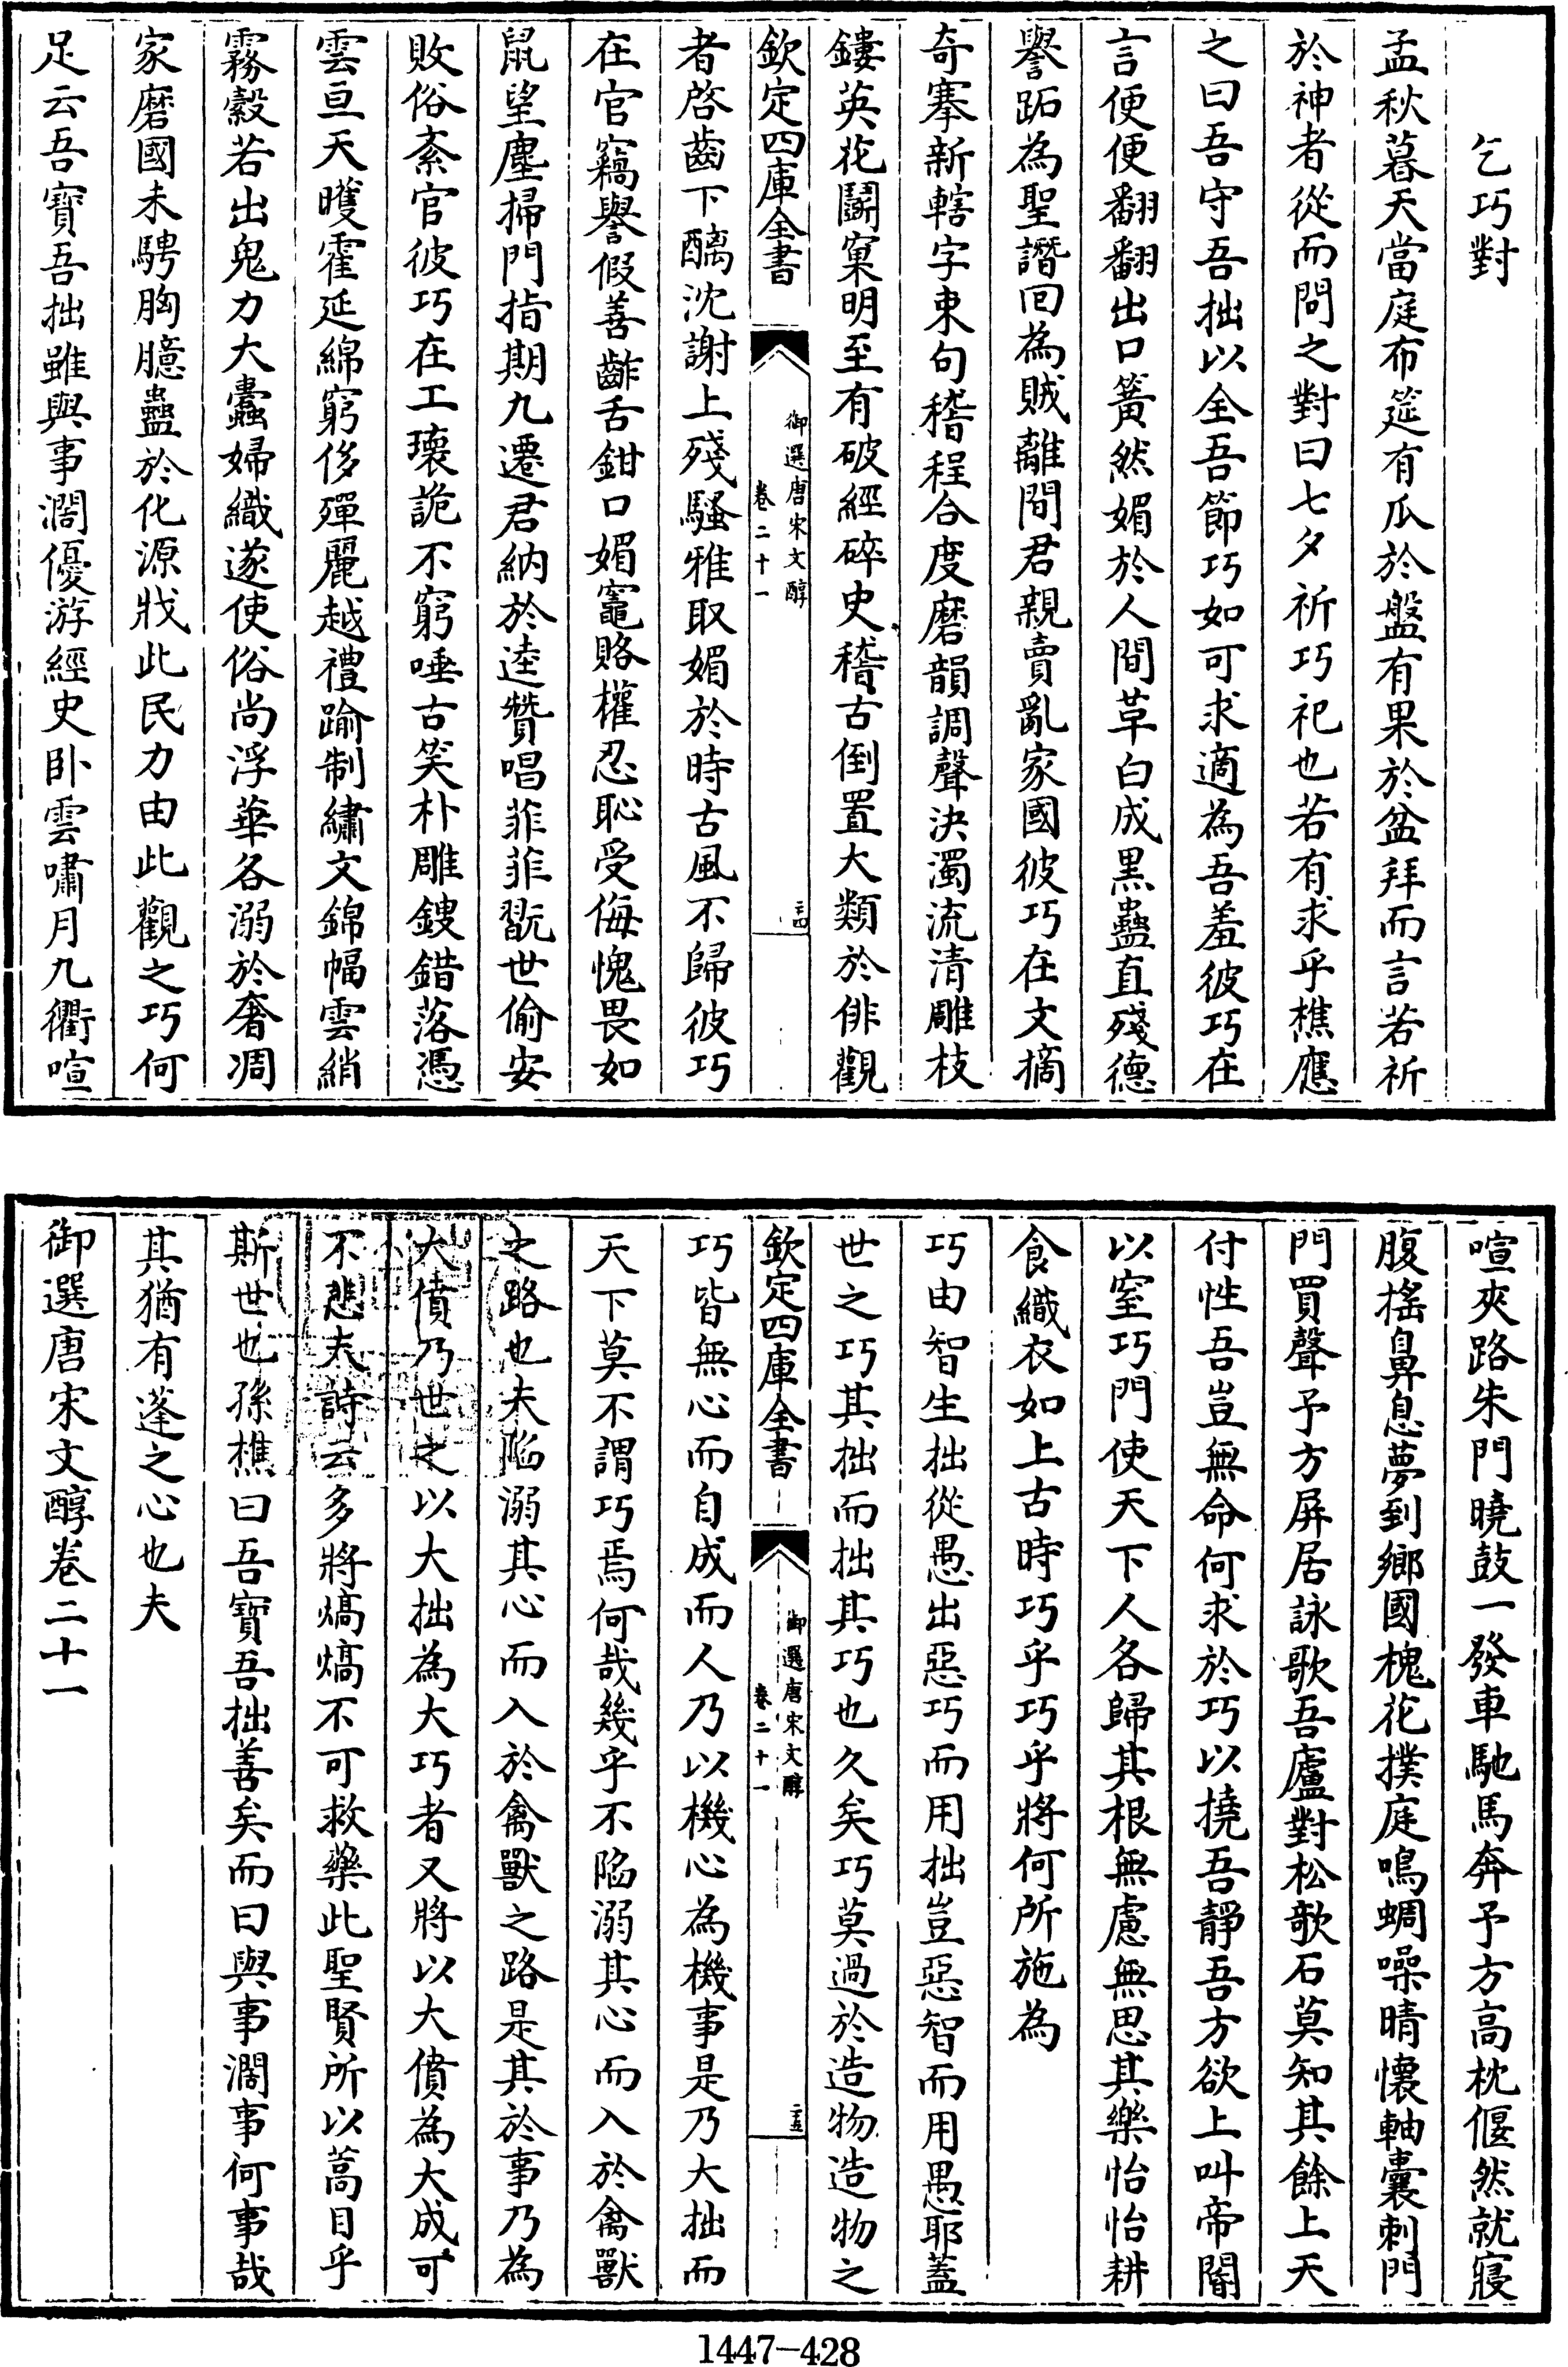 乞巧對
孟秋暮天當庭布筵有瓜於盤有果於盆拜而言若祈
於神者從而問之對曰七夕祈巧祀也若有求乎樵應
之曰吾守吾拙以全吾節巧如可求適為吾羞彼巧在
言便便翻翻出口簧然媚於人間草白成黑蠱直殘德
譽跖為聖譖回為賊離間君親賣亂家國彼巧在文摘
奇搴新轄字束句稽程合度磨韻調聲決濁流清雕枝
鏤英花鬭窠明至有破經碎史稽古倒置大類於俳觀
欽定四庫全書
御選唐宋文醇
卷二十一
二四
者啓齒下醨沈謝上殘騷雅取媚於時古風不歸彼巧
在官竊譽假善齰舌鉗口媚竈賂權忍恥受侮愧畏如
鼠望塵掃門指期九遷君納於逵贊唱菲菲翫世偷安
敗俗紊官彼巧在工壞詭不窮唾古笑朴雕鎪錯落憑
雲亘天矆霍延綿窮侈殫麗越禮踰制繡文錦幅雲綃
霧縠若出鬼力大蠹婦織遂使俗尚浮華各溺於奢凋
家磨國未騁胸臆蠱於化源戕此民力由此觀之巧何
足云吾寶吾拙雖與事濶優游經史卧雲嘯月九衢喧
喧夾路朱門曉鼓一發車馳馬奔予方高枕偃然就寢
腹搖鼻息夢到鄉國槐花撲庭鳴蜩噪晴懷軸囊刺門
門買聲予方屏居詠歌吾廬對松歌石莫知其餘上天
付性吾豈無命何求於巧以撓吾靜吾方欲上叫帝閽
以窒巧門使天下人各歸其根無慮無思其樂怡怡耕
食織衣如上古時巧乎巧乎將何所施為
巧由智生拙從愚出惡巧而用拙豈惡智而用愚耶蓋
世之巧其拙而拙其巧也久矣巧莫過於造物造物之
欽定四庫全書
御選唐宋文醇
卷二十一
二五
巧皆無心而自成而人乃以機心為機事是乃大拙而
天下莫不謂巧焉何哉幾乎不陷溺其心而入於禽獸
之路也夫陷溺其心而入於禽獸之路是其於事乃為
大僨乃世之以大拙為大巧者又將以大僨為大成可
不悲夫詩云多將熇熇不可救藥此聖賢所以蒿目乎
斯世也孫樵曰吾寶吾拙善矣而曰與事濶事何事哉
其猶有蓬之心也夫
御選唐宋文醇卷二十一
1447-428